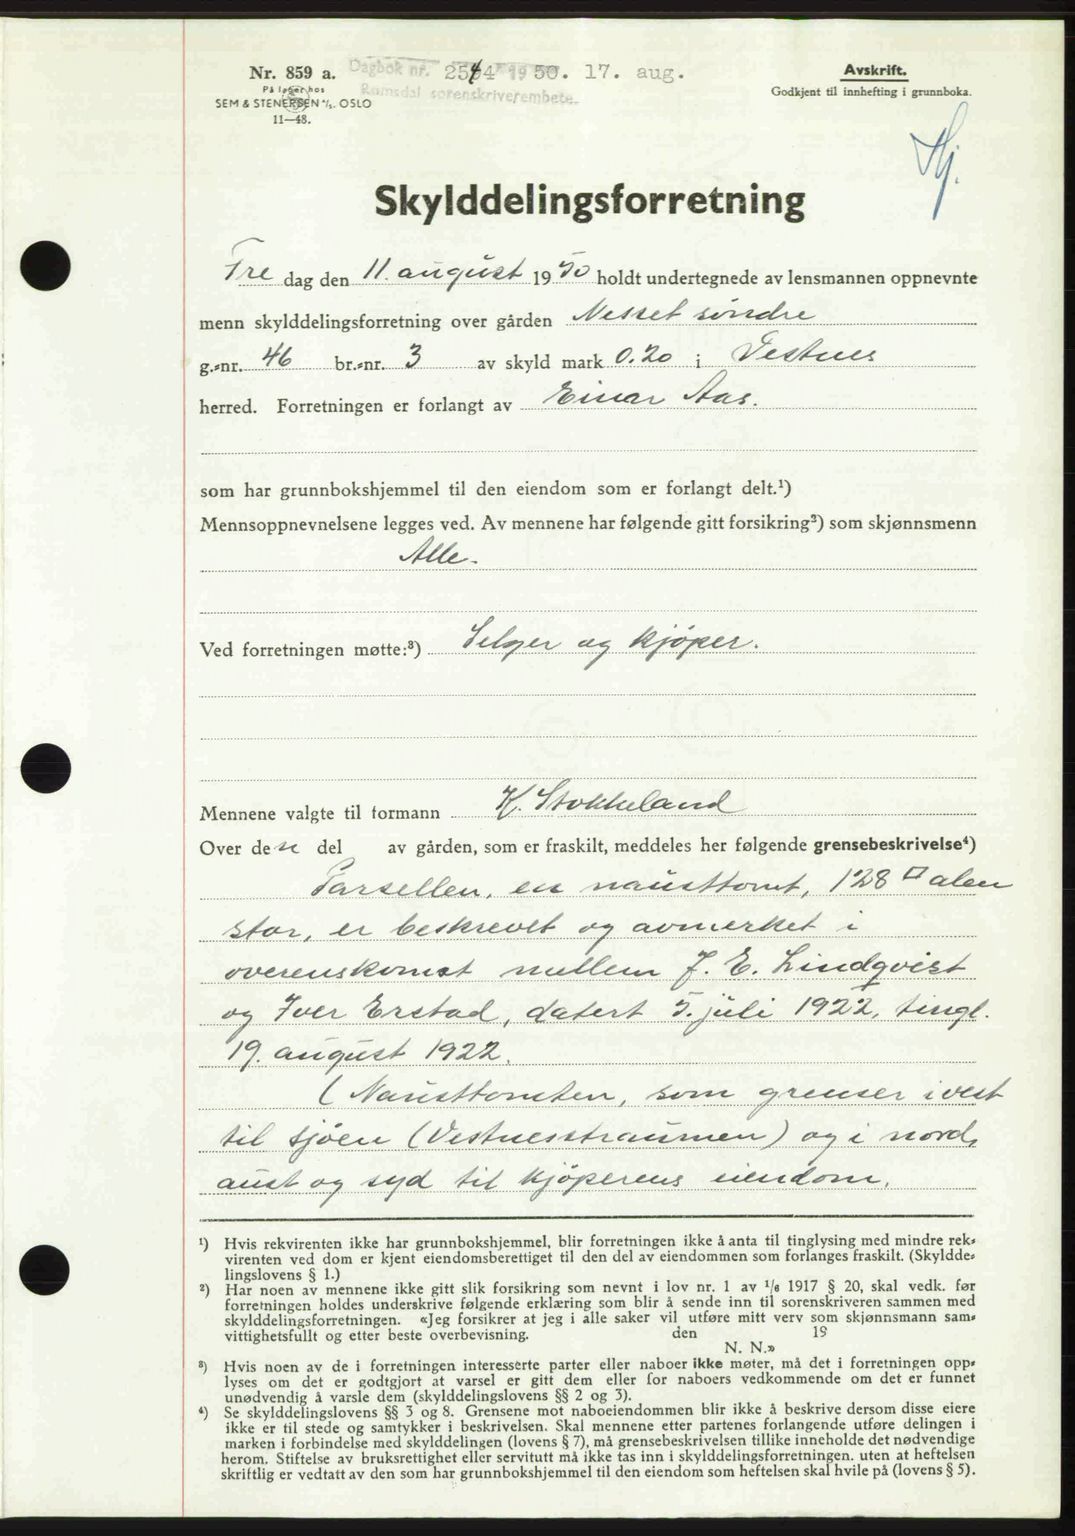 Nr. 859 a.
På lager hos
SEM & STENERSEN A/S. OSLO
11—48.
Dagbok nr. 2544 1950. 17. aug.
Romsdal sorenskriverembete.
Avskrift.
Godkjent til innhefting i grunnboka.
Hj.
Skylddelingsforretning
Fre dag den 11. august 1950 holdt undertegnede av lensmannen oppnevnte
menn skylddelingsforretning over gården Nesset søndre
g.-nr. 46 br.-nr. 3 av skyld mark 0.20 i Vestnes
herred. Forretningen er forlangt av Einar Aas.
som har grunnbokshjemmel til den eiendom som er forlangt delt.¹)
Mennsoppnevnelsene legges ved. Av mennene har følgende gitt forsikring²) som skjønnsmenn
Alle.
Ved forretningen møtte:³) Selger og kjøper.
Mennene valgte til formann K. Stokkeland
Over den del av gården, som er fraskilt, meddeles her følgende grensebeskrivelse⁴)
Parsellen, en nausttomt, 128 □ alen
stor, er beskrevet og avmerket i
overenskomst mellem J. E. Lindqvist
og Iver Erstad, datert 5. juli 1922, tingl.
19. august 1922.
(Nausttomten, som grenser i vest
til sjöen (Vestnesstraumen) og i nord,
aust og syd til kjöperens eiendom.
¹) Hvis rekvirenten ikke har grunnbokshjemmel, blir forretningen ikke å anta til tinglysing med mindre rek-
virenten ved dom er kjent eiendomsberettiget til den del av eiendommen som forlanges fraskilt. (Skyldde-
lingslovens § 1.)
²) Har noen av mennene ikke gitt slik forsikring som nevnt i lov nr. 1 av 1/6 1917 § 20, skal vedk. før
forretningen holdes underskrive følgende erklæring som blir å sende inn til sorenskriveren sammen med
skylddelingsforretningen. «Jeg forsikrer at jeg i alle saker vil utføre mitt verv som skjønnsmann sam-
vittighetsfullt og etter beste overbevisning. den 19
N. N.»
³) Hvis noen av de i forretningen interesserte parter eller naboer ikke møter, må det i forretningen opp-
lyses om det er godtgjort at varsel er gitt dem eller for naboers vedkommende om det er funnet
unødvendig å varsle dem (skylddelingslovens §§ 2 og 3).
⁴) Se skylddelingslovens §§ 3 og 8. Grensene mot naboeiendommen blir ikke å beskrive dersom disse eiere
ikke er til stede og samtykker i beskrivelsen. Skal mennene etter partenes forlangende utføre delingen i
marken i forbindelse med skylddelingen (lovens § 7), må grensebeskrivelsen tillike inneholde det nødvendige
herom. Stiftelse av bruksrettighet eller servitutt må ikke tas inn i skylddelingsforretningen. uten at heftelsen
skriftlig er vedtatt av den som har grunnbokshjemmel til den eiendom som heftelsen skal hvile på (lovens § 5).